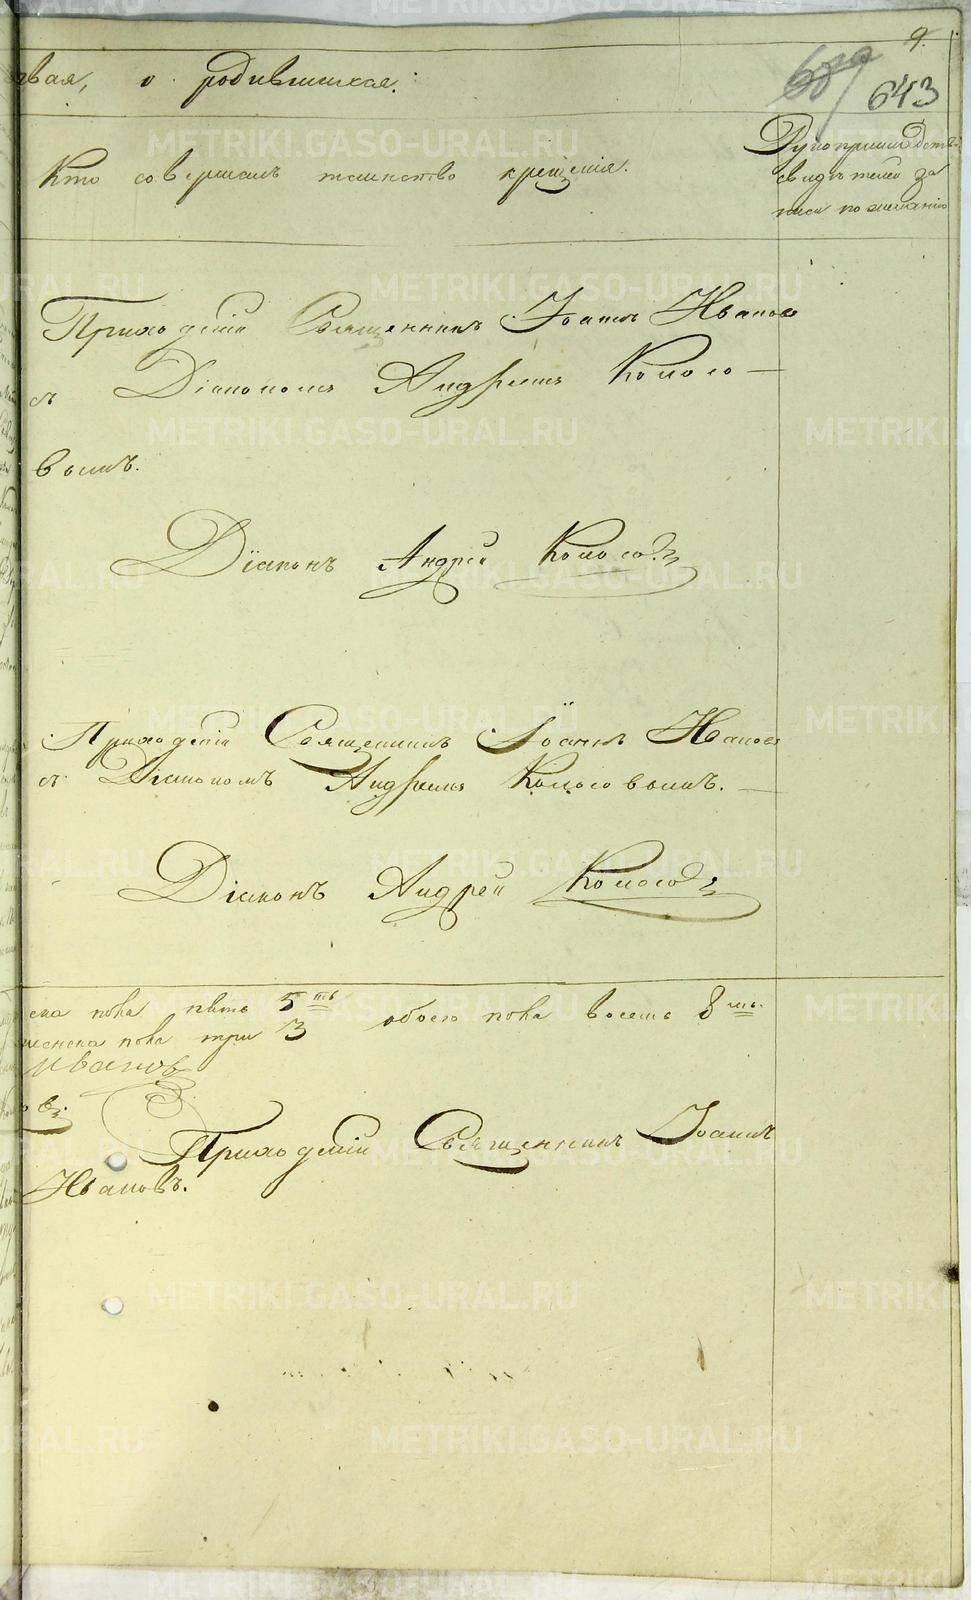 9.
643
вая, о родившихся:
Кто совершалъ таинство крещенія.
Рукоприкладство
свидѣтелей за
писи по желанію
Приходскій Священникъ Іоаннъ Ивановъ
съ Діакономъ Андреемъ Колосо—
вымъ.
Діаконъ Андрей Колосовъ
Приходскій Священникъ Іоаннъ Ивановъ
съ Діакономъ Андреемъ Колосовымъ.
Діаконъ Андрей Колосовъ
ска пола пять 5 ть обоего пола восемь 8 мь.
женска пола три 3
Ивановъ
Приходскій Священникъ Іоаннъ
Ивановъ.
METRIKI.GASO-URAL.RU